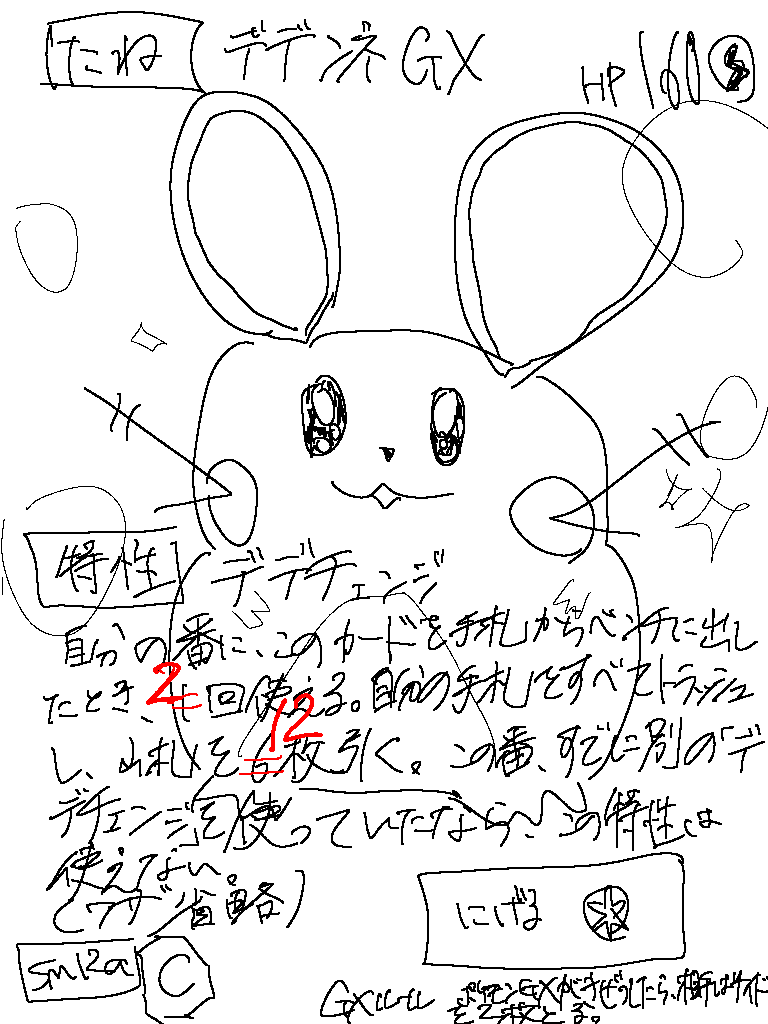 たね デデンネGX HP160
特性 デデチェンジ
自分の番に、このカードを手札からベンチに出し
たとき、1 2回使える。自分の手札をすべてトラッシュ
し、山札を6 12枚引く。この番、すでに別の「デ
デチェンジ」を使っていたなら、この特性は
使えない。
(ワザ省略)
にげる
sm12a C
GXルール ポケモンGXがきぜつしたら、相手はサイド
を2枚とる。